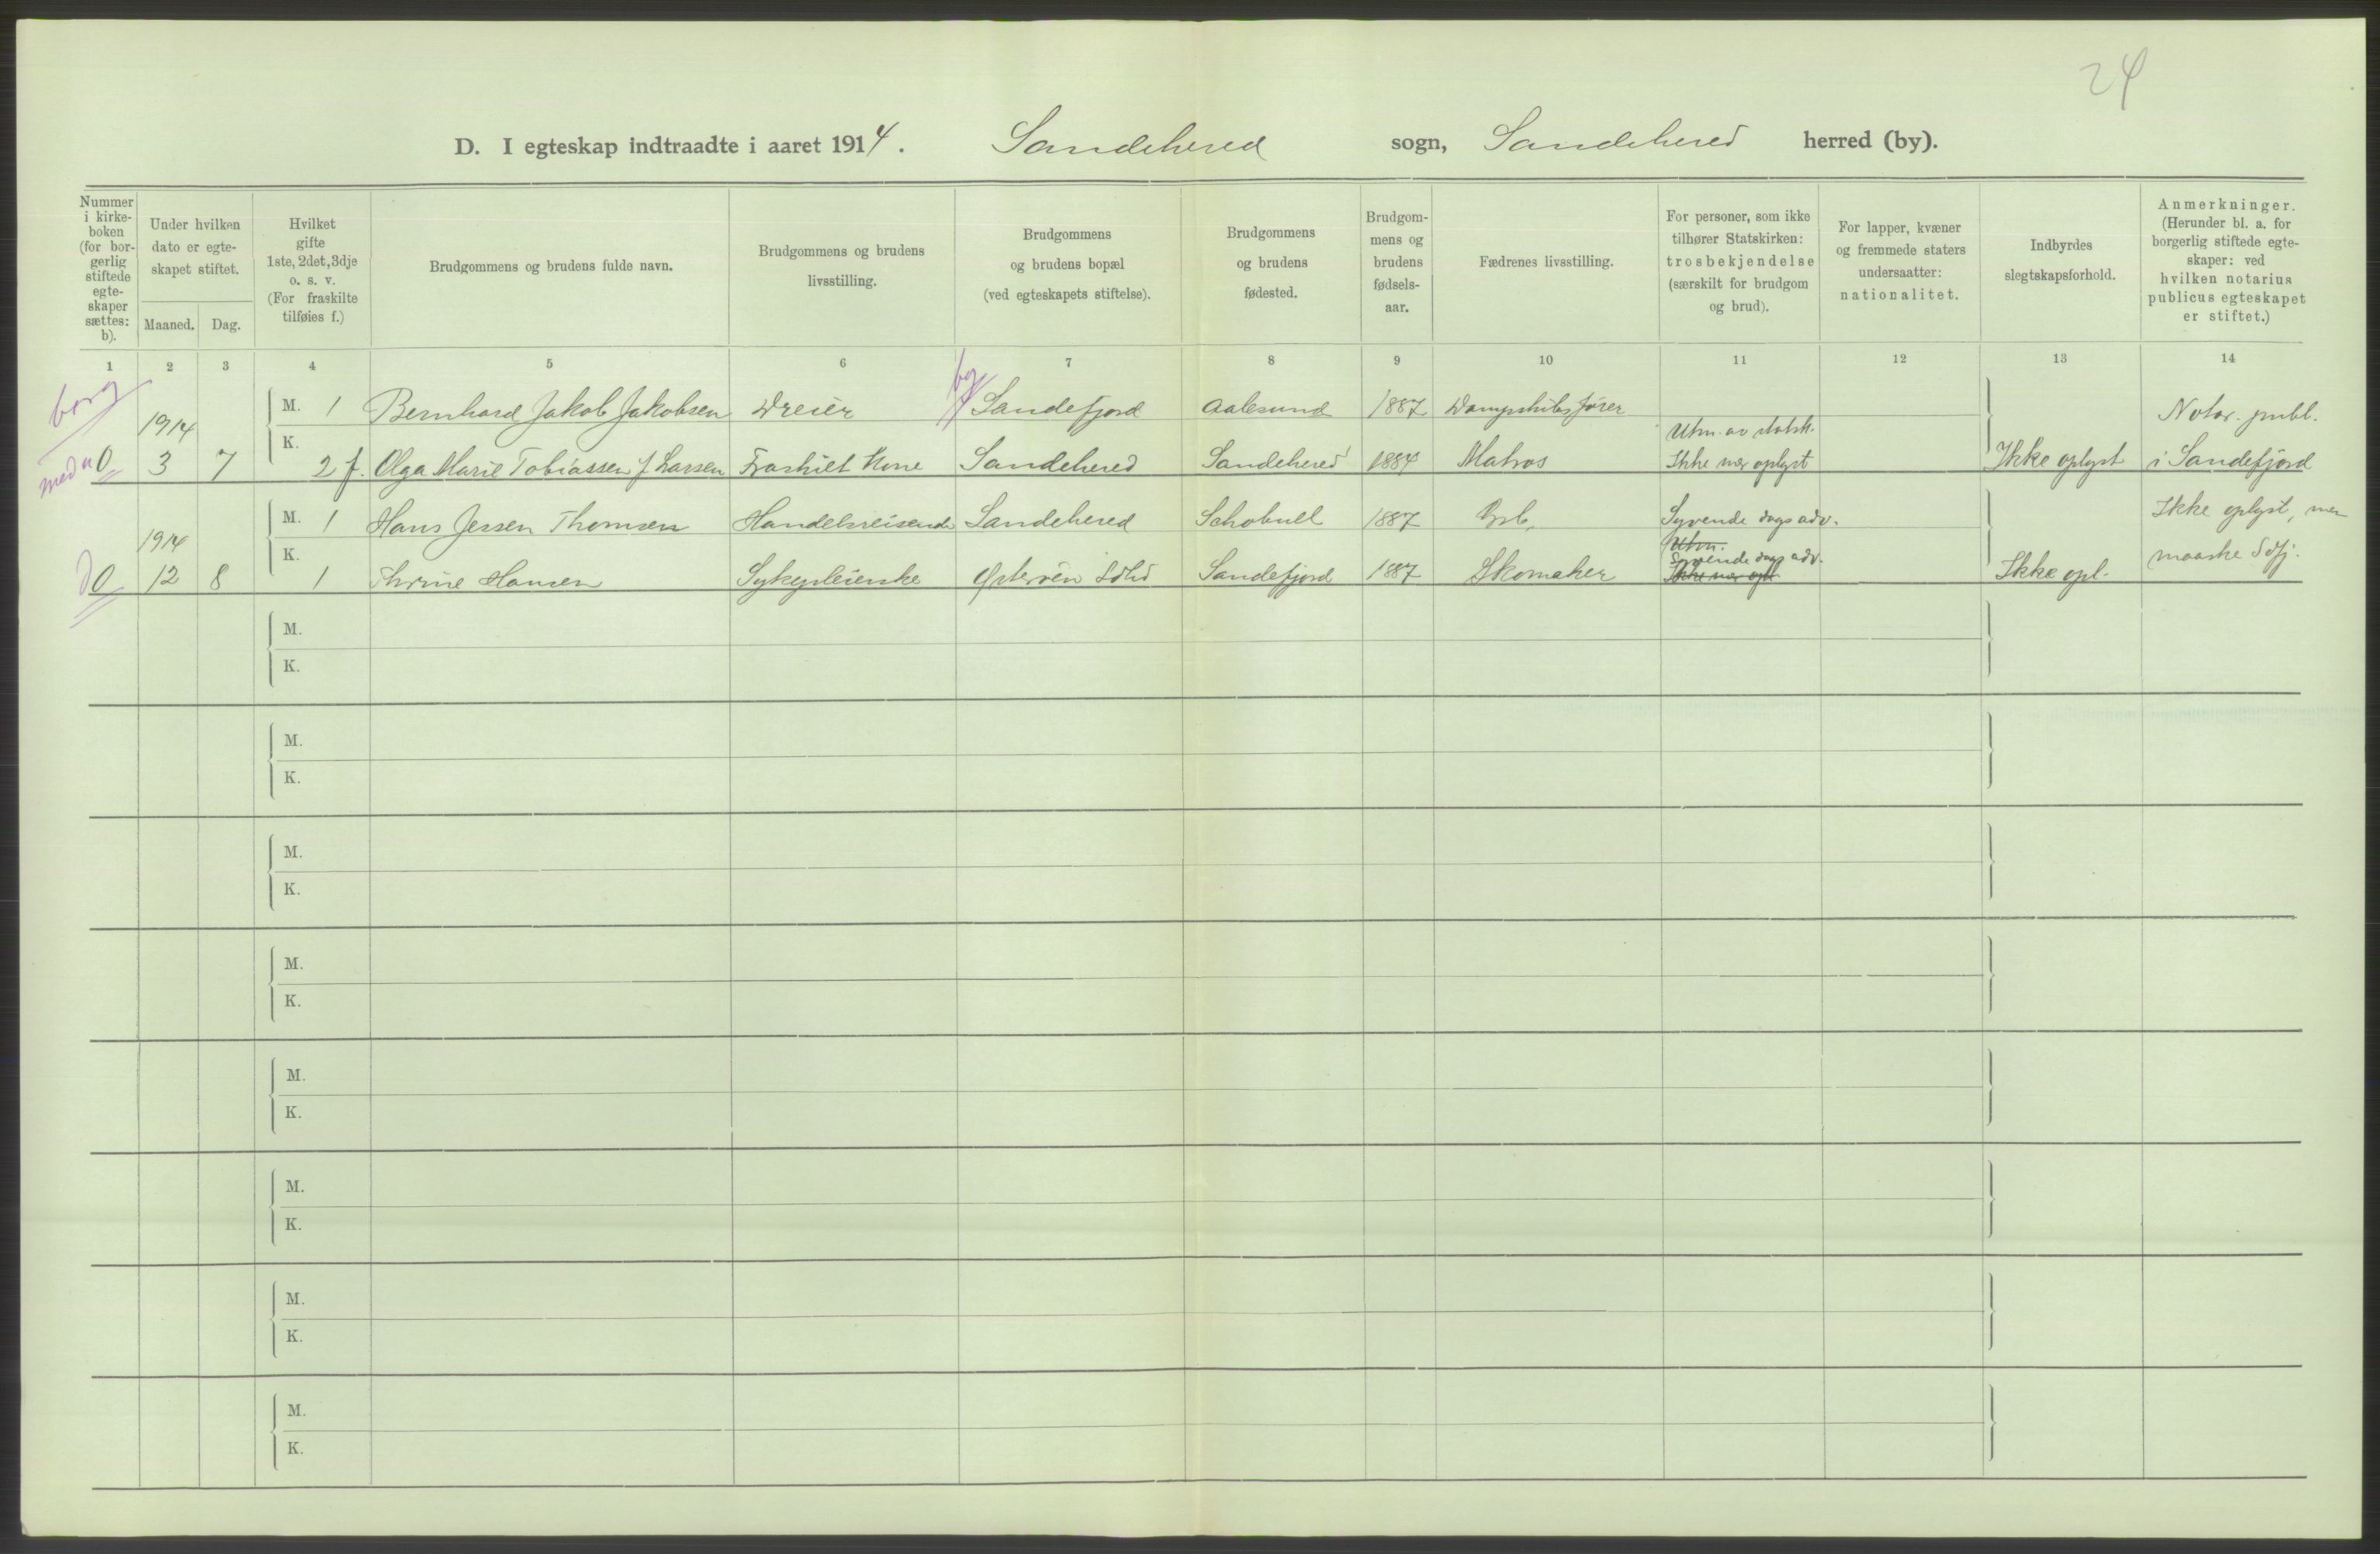 24
D. I egteskap indtraadte i aaret 1914. Sandehered sogn, Sandehered herred (by).
Nummer i kirke-boken (for bor-gerlig stiftede egte-skaper sættes: b).
Under hvilken dato er egte-skapet stiftet.
Maaned. Dag.
Hvilket gifte 1ste, 2det, 3dje o. s. v. (For fraskilte tilføies f.)
Brudgommens og brudens fulde navn.
Brudgommens og brudens livsstilling.
Brudgommens og brudens bopæl (ved egteskapets stiftelse).
Brudgommens og brudens fødested.
Brudgom-mens og brudens fødsels-aar.
Fædrenes livsstilling.
For personer, som ikke tilhører Statskirken: trosbekjendelse (særskilt for brudgom og brud).
For lapper, kvæner og fremmede staters undersaatter: nationalitet.
Indbyrdes slegtskapsforhold.
Anmerkninger. (Herunder bl. a. for borgerlig stiftede egte-skaper: ved hvilken notarius publicus egteskapet er stiftet.)
1 2 3 4 5 6 7 8 9 10 11 12 13 14
borg
by
1914 M. 1 Bernhard Jakob Jakobsen Dreier Sandefjord Aalesund 1887 Dampskibsfører Notar. publ.
Utm. av statsk.
0 3 7 K. 2 f. Olga Marie Tobiassen f Larsen Fraskilt Kone Sandehered Sandehered 1884 Matros Ikke nær oplyst Ikke oplyst i Sandefjord
1914 M. 1 Hans Jessen Thomsen Handelsreisende Sandehered Schobüll 1887 Syvende dags adv. Ikke oplyst, men
Utm.
Syvende dags adv. maaske Sdfj.
0 12 8 K. 1 Thrine Hansen Sykepleierske Østerøen Sandefjord 1887 Skomaker Ikke nær opl Ikke opl.
M.
K.
M.
K.
M.
K.
M.
K.
M.
K.
M.
K.
M.
K.
M.
K.